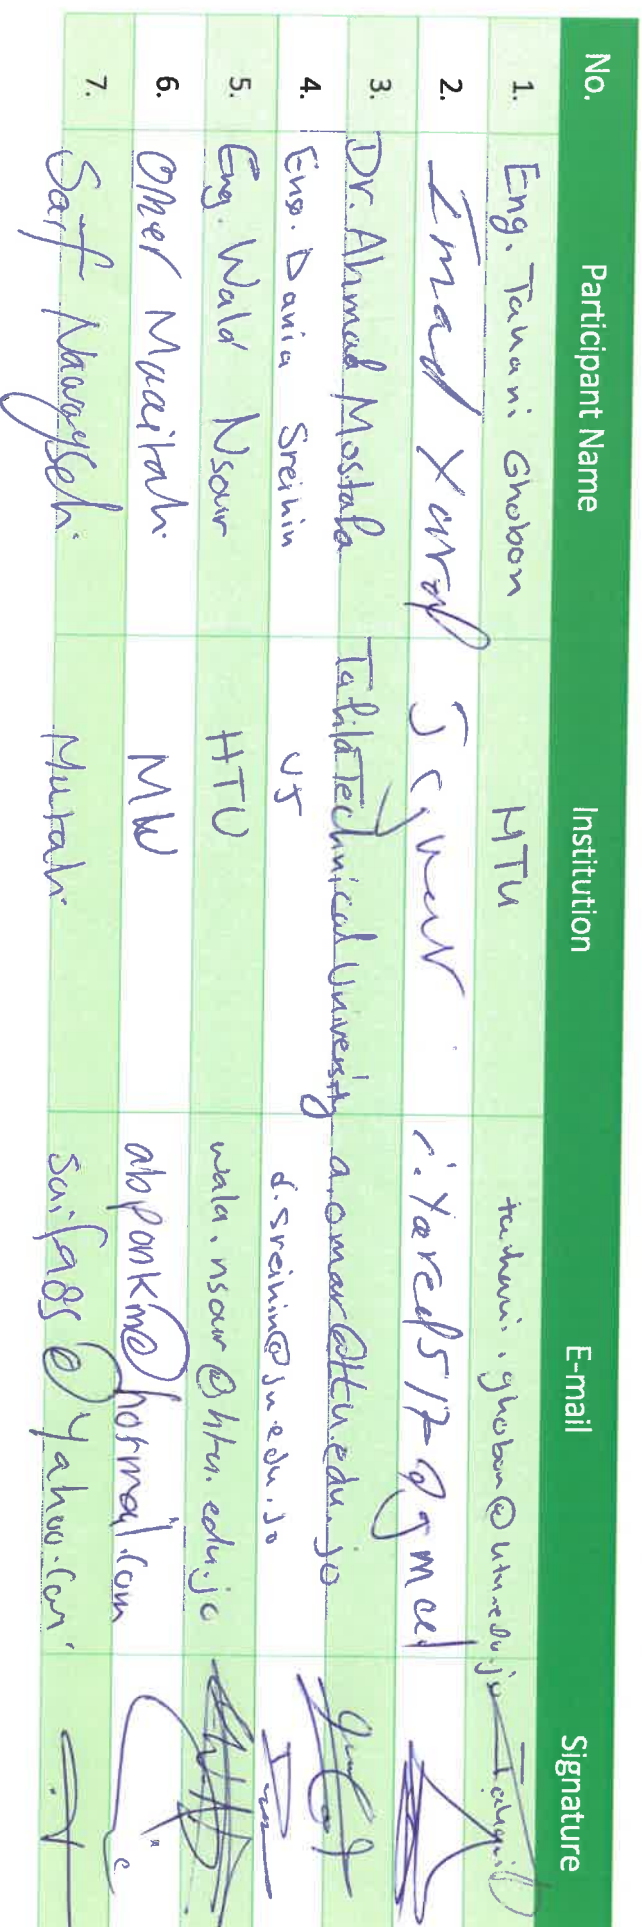 No. Participant Name Institution E-mail Signature
1. Eng. Tahani Ghobon HTU tahani.ghobon@htu.edu.jo
2. Imad
3. Dr. Ahmad Mostafa Tafila Technical University a.omar@ttu.edu.jo
4. Eng. Dania Sreihin UJ d.sreihin@ju.edu.jo
5. Eng. Wala' Nsour HTU wala.nsour@htu.edu.jo
6. Omer Maaitah MW abponkme@hotmail.com
7. Saif Nawayseh Mutah saifa85@yahoo.com